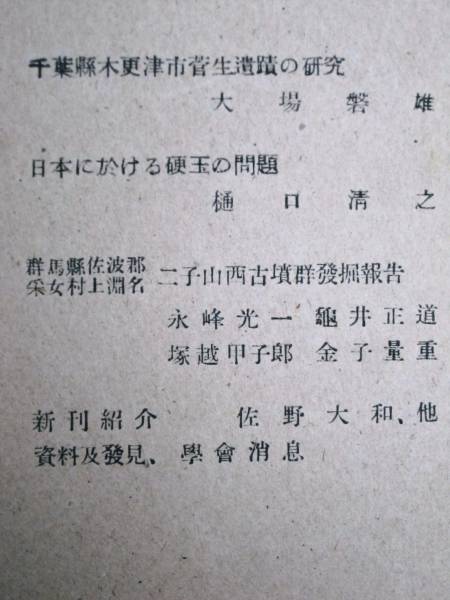 千葉縣木更津市菅生遺蹟の研究
大場磐雄
日本に於ける硬玉の問題
樋口清之
群馬縣佐波郡
采女村上淵名 二子山西古墳群發掘報告
永峰光一 龜井正道
塚越甲子郎 金子量重
新刊紹介 佐野大和、他
資料及發見、學會消息